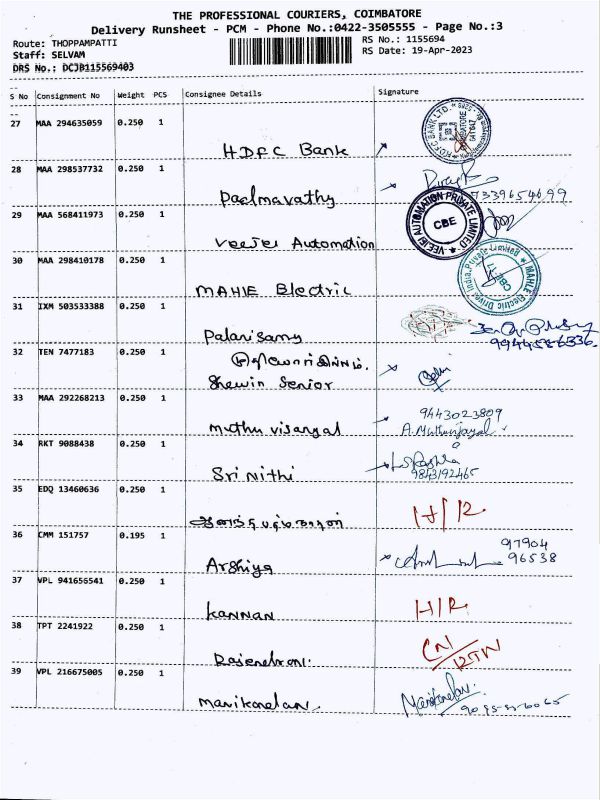 THE PROFESSIONAL COURIERS, COIMBATORE
Delivery Runsheet - PCM - Phone No.:0422-3505555 - Page No.:3
Route: THOPPAMPATTI RS No.: 1155694
Staff: SELVAM RS Date: 19-Apr-2023
DRS No.: DCJB115569403
S No Consignment No Weight PCS Consignee Details Signature
27 MAA 294635059 0.250 1
HDFC Bank
28 MAA 298537732 0.250 1
Padmavathy 7339654699
29 MAA 568411973 0.250 1
VEEJEI AUTOMATION PRIVATE LIMITED
CBE
Veejei Automation
30 MAA 298410178 0.250 1
MAHLE Electric Drives India Private Limited
MAHIE Electric
31 IXM 503533388 0.250 1
Palanisamy
9944586336.
32 TEN 7477183 0.250 1
Shewin Senior
33 MAA 292268213 0.250 1
9443023809
Muthu visangal
34 RKT 9088438 0.250 1
Sri Nithi
9843192465
35 EDQ 13460636 0.250 1
H/R
36 CMM 151757 0.195 1
97904
96538
Arshiya
37 VPL 941656541 0.250 1
KANNAN H/R
38 TPT 2241922 0.250 1
Rajendran.
39 VPL 216675005 0.250 1
Manikandan
Manikandan.